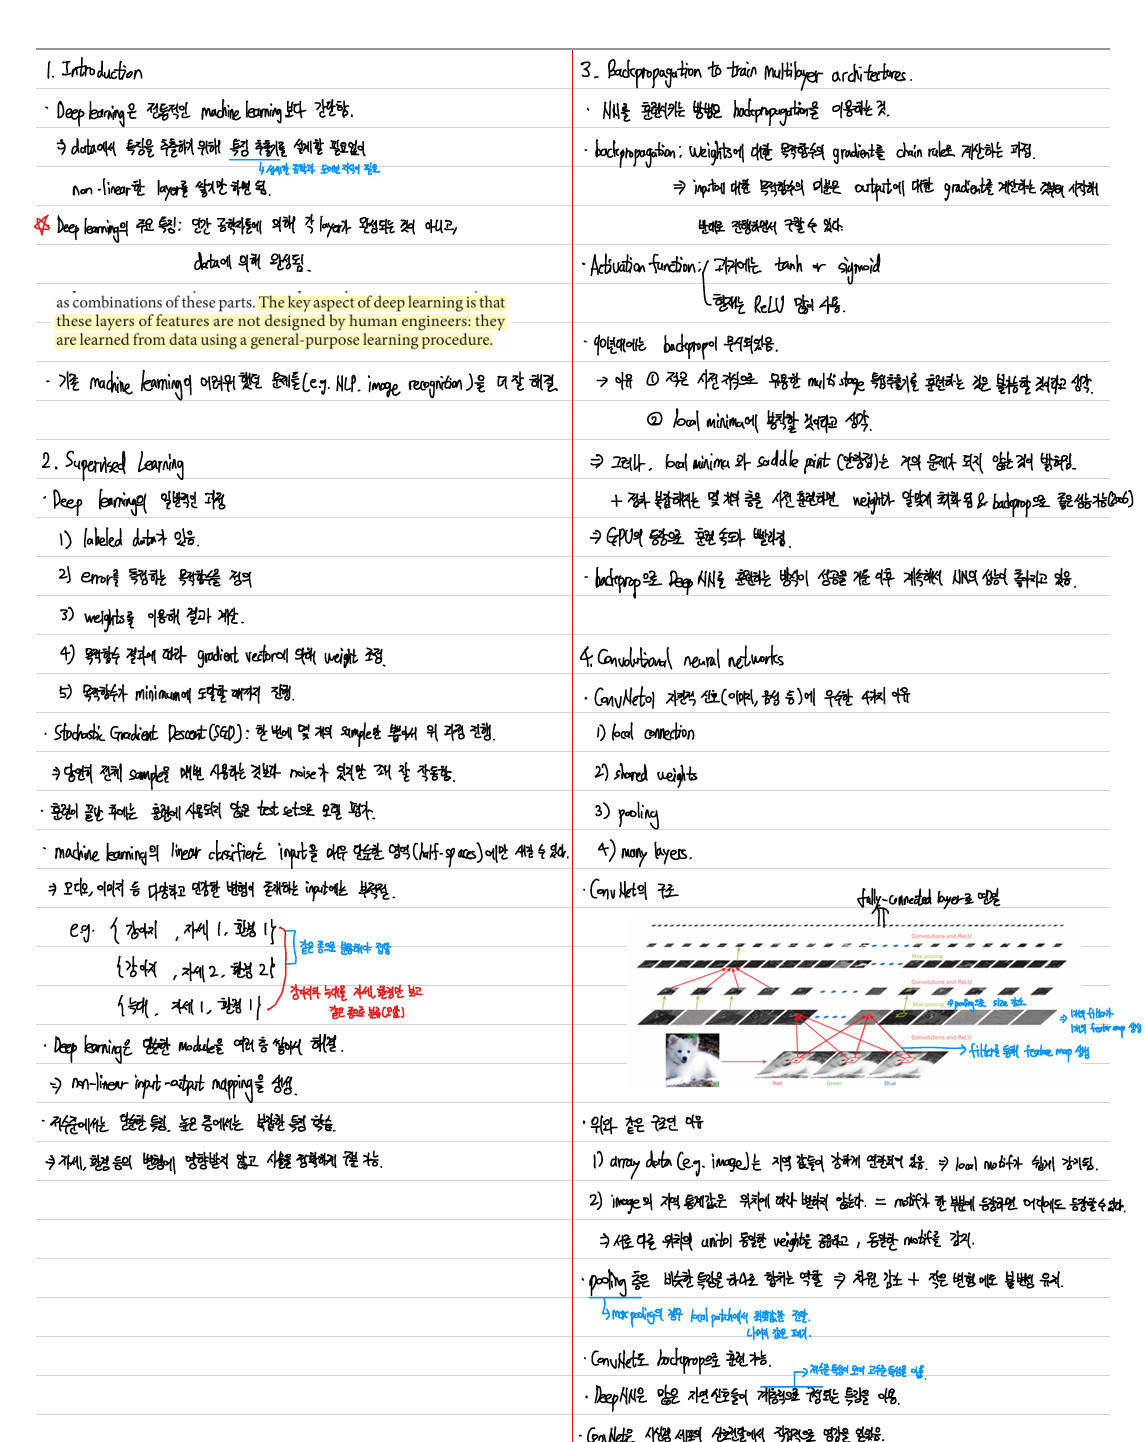 1. Introduction
· Deep learning은 전통적인 machine learning보다 간단함.
⇒ data에서 특징을 추출하기 위해 특징 추출기를 설계할 필요없이
↳ 섬세한 공학과 도메인 지식이 필요
non-linear한 layer를 쌓기만 하면 됨.
☆ Deep learning의 주요 특징: 인간 공학자들에 의해 각 layer가 완성되는 것이 아니고,
data에 의해 완성됨.
as combinations of these parts. The key aspect of deep learning is that
these layers of features are not designed by human engineers: they
are learned from data using a general-purpose learning procedure.
· 기존 machine learning이 어려워 했던 문제들(e.g. NLP. image recognition)을 더 잘 해결.
2. Supervised Learning
· Deep learning의 일반적인 과정
1) labeled data가 있음.
2) error를 측정하는 목적함수를 정의
3) weights를 이용해 결과 계산.
4) 목적함수 결과에 따라 gradient vector에 의해 weight 조정.
5) 목적함수가 minimum에 도달할 때까지 진행.
· Stochastic Gradient Descent(SGD): 한 번에 몇 개의 sample만 뽑아서 위 과정 진행.
⇒ 당연히 전체 sample을 매번 사용하는 것보다 noise가 있지만 꽤 잘 작동함.
· 훈련이 끝난 후에는 훈련에 사용되지 않은 test set으로 모델 평가.
· machine learning의 linear classifier는 input을 매우 단순한 영역(half-spaces)에만 새길 수 있다.
⇒ 오디오, 이미지 등 다양하고 민감한 변형이 존재하는 input에는 부적절.
e.g. {강아지, 자세 1, 환경 1}
같은 종으로 분류해야 정답
{강아지, 자세 2, 환경 2}
{늑대, 자세 1, 환경 1}
강아지와 늑대를 자세, 환경만 보고
같은 종으로 분류(오답)
· Deep learning은 단순한 module을 여러 층 쌓아서 해결.
⇒ non-linear input-output mapping을 생성.
· 저수준에서는 단순한 특징. 높은 층에서는 복잡한 특징 학습.
⇒ 자세, 환경 등의 변형에 영향받지 않고 사물을 정확하게 구분 가능.
3. Backpropagation to train multilayer architectures.
· NN을 훈련시키는 방법은 backpropagation을 이용하는 것.
· backpropagation: weights에 대한 목적함수의 gradient를 chain rule로 계산하는 과정.
⇒ input에 대한 목적함수의 미분은 output에 대한 gradient를 계산하는 것부터 시작해
반대로 진행하면서 구할 수 있다.
· Activation function: 과거에는 tanh or sigmoid
현재는 ReLU 많이 사용.
· 90년대에는 backprop이 무시되었음.
→ 이유 ① 적은 사전 지식으로 유용한 multi stage 특징추출기를 훈련하는 것은 불가능할 것이라고 생각.
② local minima에 봉착할 것이라고 생각.
⇒ 그러나, local minima와 saddle point (안장점)는 거의 문제가 되지 않는 것이 밝혀짐.
+ 점차 복잡해지는 몇 개의 층을 사전 훈련하면 weight가 알맞게 초기화 됨 & backprop으로 좋은 성능 가능(2006)
⇒ GPU의 등장으로 훈련 속도가 빨라짐.
· backprop으로 Deep NN을 훈련하는 방식이 성공을 거둔 이후 계속해서 NN의 성능이 좋아지고 있음.
4. Convolutional neural networks
· ConvNet이 자연적 신호(이미지, 음성 등)에 우수한 4가지 이유
1) local connection
2) shared weights
3) pooling
4) many layers.
· ConvNet의 구조
fully-connected layer로 연결
Convolutions and ReLU
Max pooling
Convolutions and ReLU
Max pooling
→ pooling으로 size 감소
Convolutions and ReLU
→ filter를 통해 feature map 생성
Red Green Blue
· 위와 같은 구조인 이유
1) array data (e.g. image)는 지역 값들이 강하게 연관되어 있음. ⇒ local motif가 쉽게 감지됨.
2) image의 지역 통계값은 위치에 따라 변하지 않는다. = motif가 한 부분에 등장하면 어디에도 등장할 수 있다.
⇒ 서로 다른 위치의 unit이 동일한 weight를 공유하고, 동일한 motif를 감지.
· pooling 층은 비슷한 특징을 하나로 합치는 역할 ⇒ 차원 감소 + 작은 변형에도 불변성 유지.
↳ max pooling의 경우 local patch에서 최댓값만 전달.
나머지 값은 폐기.
· ConvNet도 backprop으로 훈련 가능.
→ 저수준 특징이 모여 고수준 특징을 이룸.
· Deep NN은 많은 자연 신호들이 계층적으로 구성되는 특징을 이용.
· ConvNet은 시신경 세포의 신호전달에서 직접적으로 영감을 얻었음.